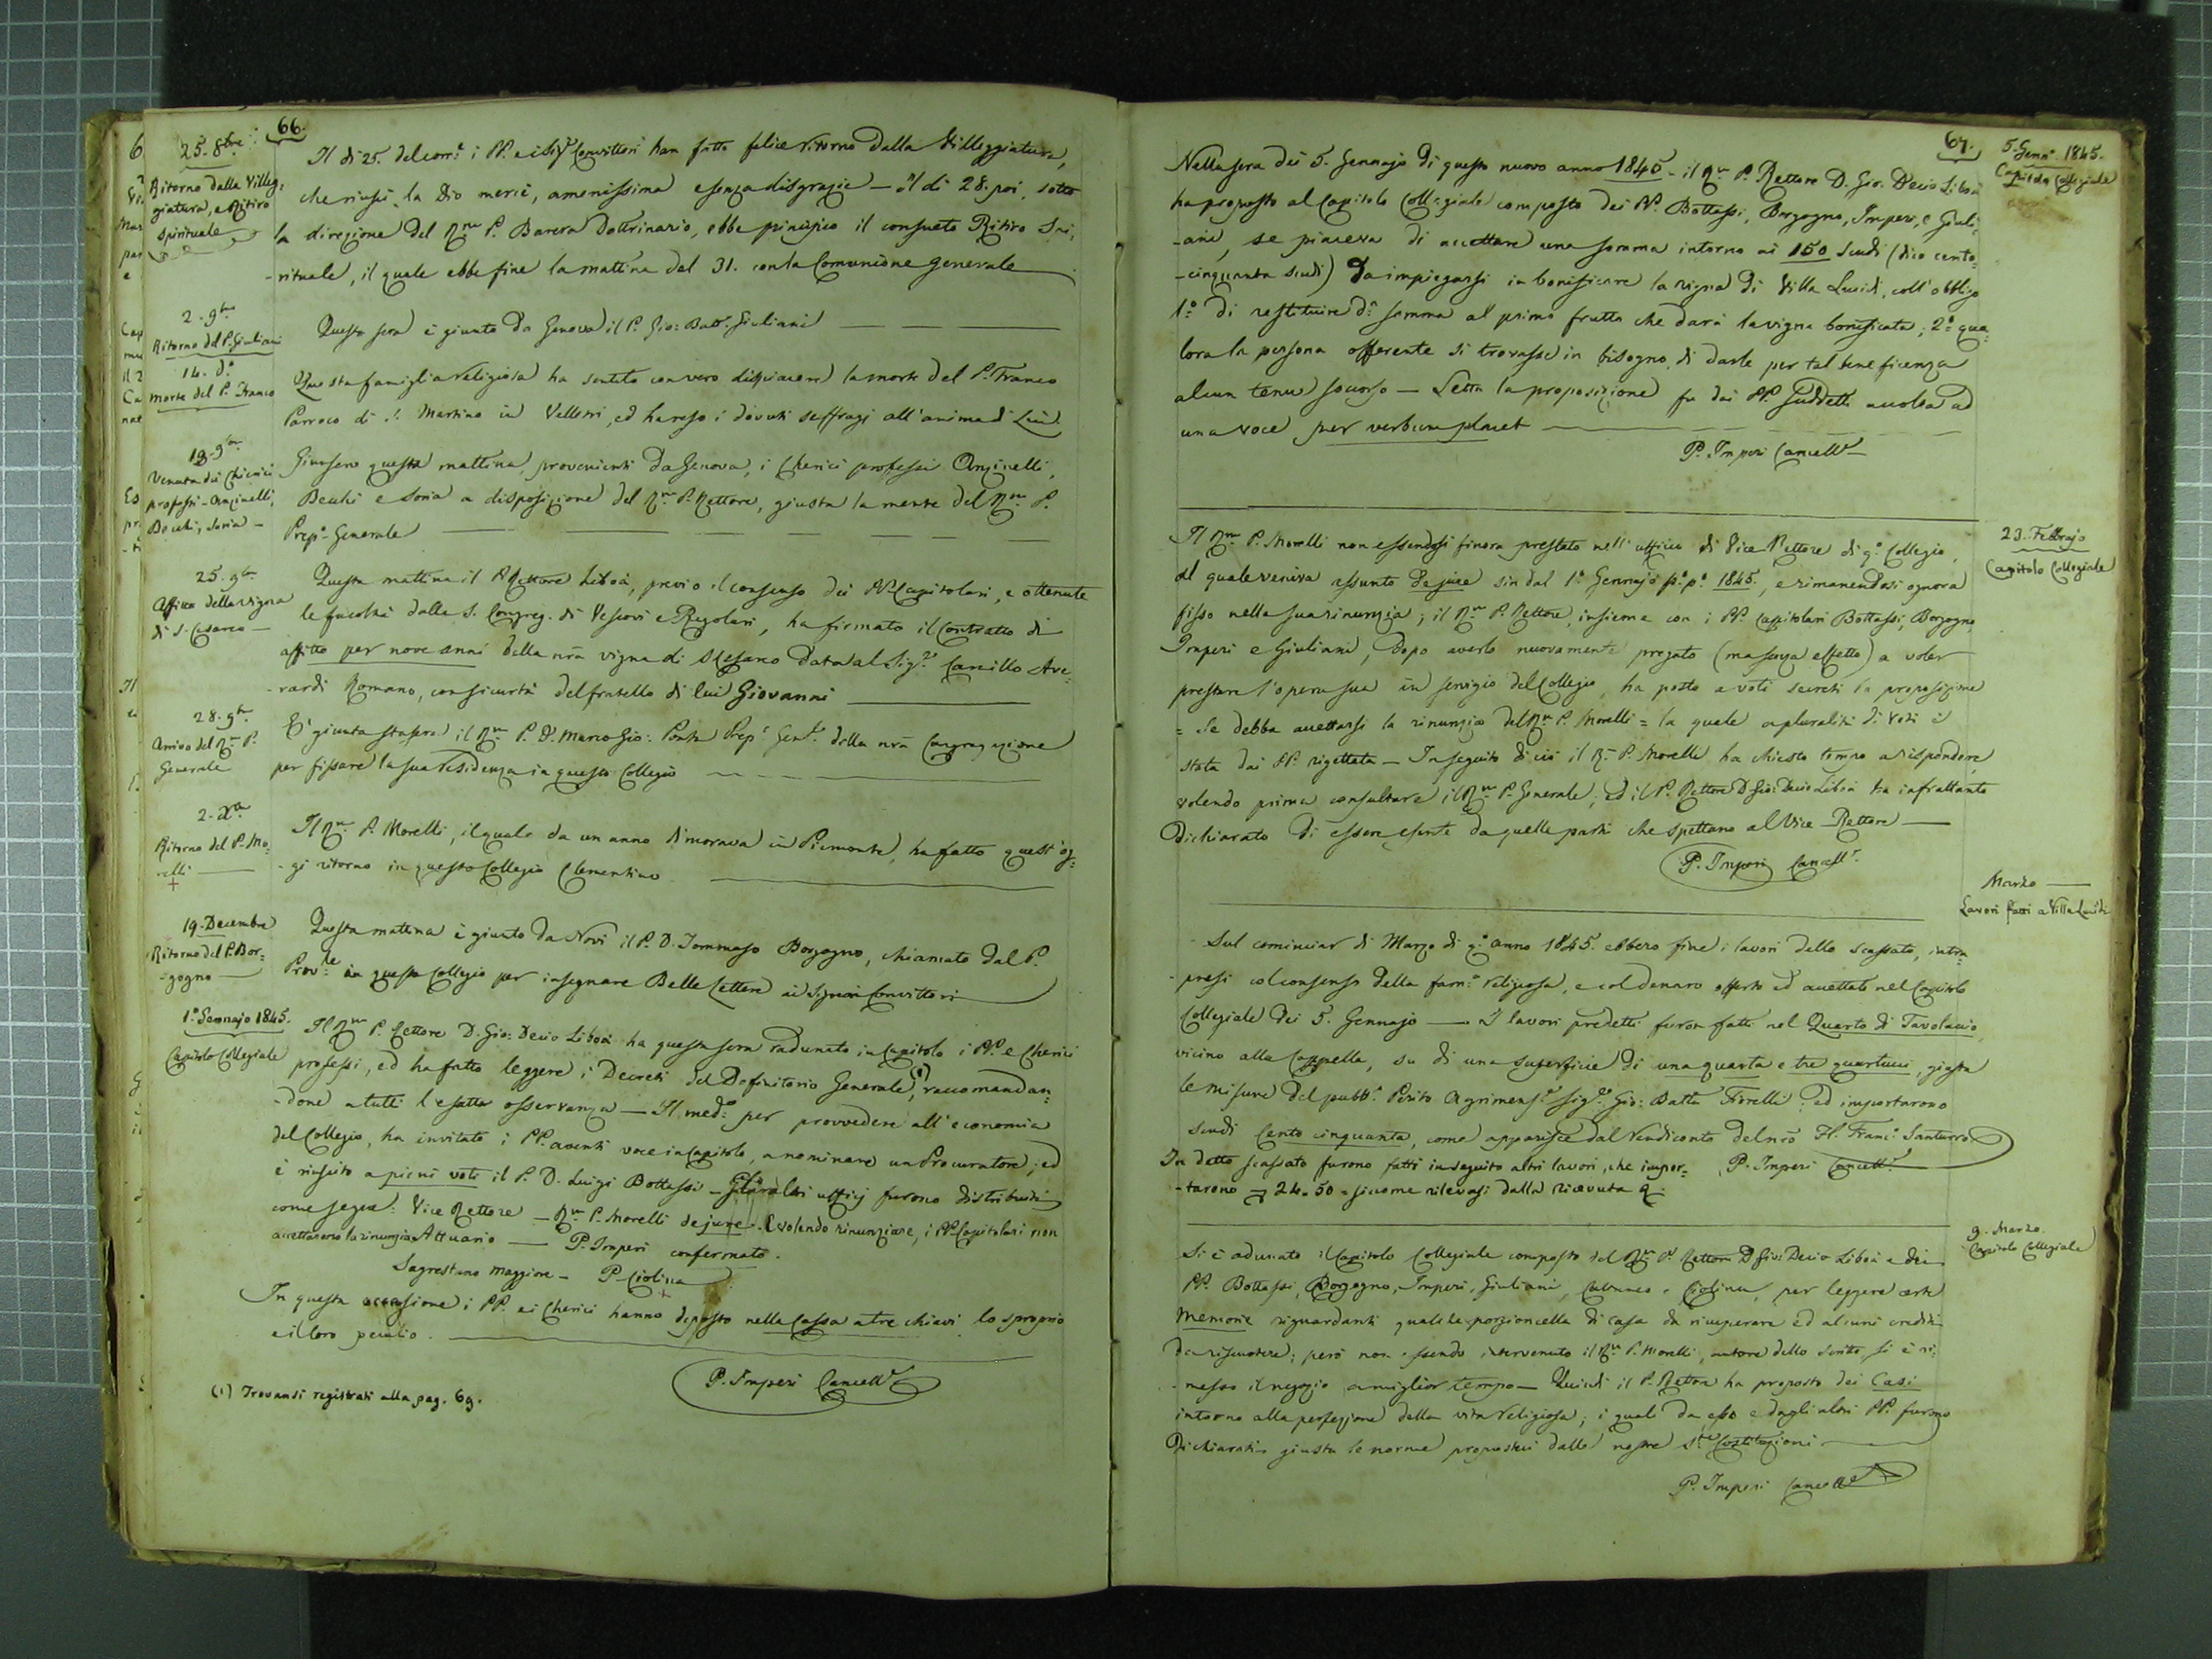 66.
25. 8bre
Ritorno dalla Villeg:
giatura, e Ritiro
Spirituale
Il di 25. del corr.e i PP. e i Sig.i Convittori han fatto felice ritorno dalla Villeggiatura,
che riuscì, la Dio mercè, amenissima e senza disgrazie — Il di 28. poi, sotto
la direzione del Rmo P. Barera Dottrinario, ebbe principio il consueto Ritiro Spi:
-rituale, il quale ebbe fine la mattina del 31. con la Comunione generale
2. 9bre
Ritorno del P. Giuliani
Questa sera è giunto da Genova il P. Gio: Batt.a Giuliani
14. do
morte del P. Franco
Questa famiglia religiosa ha sentito con vero dispiacere la morte del P. Franco
Parroco di S. Martino in Velletri, ed ha reso i dovuti suffragi all'anima di Lui.
19. 9bre
Venuta dei Chierici
professi - Anzinelli,
Becchi, Soria -
Giunsero questa mattina, provenienti da Genova, i Cherici professi Anzinelli,
Becchi e Soria a disposizione del Rmo P. Rettore, giusta la mente del Rmo P.
Prep.o Generale
25. 9bre
Affitto della vigna
di S. Cesareo —
Questa mattina il P. Rettore Libois, previo il consenso dei PP. Capitolari, e ottenute
le facoltà dalla S. Congreg. di Vescovi e Regolari, ha firmato il Contratto di
affitto per nove anni della nrã vigna di S. Cesareo data al Sig.re Camillo Ave:
-rardi Romano, con sicurtà del fratello di lui Giovanni
28. 9bre
Arrivo del Rmo P.
Generale
È giunto stasera il Rmo P. D. Marco Gio: Ponta Prep.o Gen.le della nrã Congregazione
per fissare la sua residenza in questo Collegio
2. Xbre
Ritorno del P. Mo:
relli
Il Rmo P. Morelli, il quale da un anno dimorava in Piemonte, ha fatto quest'og:
-gi ritorno in questo Collegio Clementino
19. Decembre
Ritorno del P. Bor:
-gogno
Questa mattina è giunto da Novi il P. D. Tommaso Borgogno, chiamato dal P.
Prov.le in questo Collegio per insegnare Belle Lettere ai Signori Convittori
1.o Gennajo 1845.
Capitolo Collegiale
Il Rmo P. Rettore D. Gio: Decio Libois ha questa sera radunato in Capitolo i PP. e Cherici
professi, ed ha fatto leggere i Decreti del Definitorio Generale (1), raccomandan:
-done a tutti l'esatta osservanza — Il med.o per provvedere all'economia
del Collegio, ha invitato i PP. aventi voce in Capitolo, a nominare un Procuratore; ed
è riuscito a pieni voti il P. D. Luigi Bottassi — Gli altri uffizj furono distribuiti
come segue: Vice Rettore — Rmo P. Morelli de jure. E volendo rinunziare, i PP. Capitolari non
accettarono la rinunzia. Attuario — P. Imperi confermato.
Sagrestano maggiore — P. Ciolina
In questa occasione i PP. ei Cherici hanno deposto nella Cassa a tre chiavi lo sproprio
e il loro peculio.
P. Imperi Cancell.e
(1) Trovansi registrati alla pag. 69.
67.
5. Genn.o 1845.
Capitolo Collegiale
Nella sera dei 5. Gennajo di questo nuovo anno 1845 - il Rmo P. Rettore D. Gio. Decio Libois
ha proposto al Capitolo Collegiale composto dei PP. Bottassi, Borgogno, Imperi, e Giuli:
-ani, se piaceva di accettare una somma intorno ai 150 Scudi (dico cento:
-cinquanta scudi) da impiegarsi in bonificare la vigna di Villa Lucidi, coll'obbligo
1.o di restituire d.a somma al primo frutto che darà la vigna bonificata; 2.o qua:
lora la persona offerente si trovasse in bisogno, di darle per tal beneficenza
alcun tenue soccorso — Letta la proposizione fu dai PP. suddetti accolta ad
una voce per verbum placet
P. Imperi Cancell.e
23. Febbrajo
Capitolo Collegiale
Il Rmo P. Morelli non essendosi finora prestato nell'uffizio di Vice-Rettore di q.o Collegio,
al quale veniva assunto de jure sin dal 1.o Gennajo p.o p.o 1845., e rimanendosi ognora
fisso nella sua rinunzia; il Rmo P. Rettore, insieme con i PP. Capitolari Bottassi, Borgogno,
Imperi e Giuliani, dopo averlo nuovamente pregato (ma senza effetto) a voler
prestare l'opera sua in servigio del Collegio, ha posto a voti secreti la proposizione
= Se debba accettarsi la rinunzia del Rmo P. Morelli = la quale a pluralità di voti è
stata dai PP. rigettata — In seguito di ciò il R. P. Morelli ha chiesto tempo a rispondere,
volendo prima consultare il Rmo P. Generale; ed il P. Rettore D. Gio: Decio Libois ha infrattanto
dichiarato di essere esente da quelle parti che spettano al Vice-Rettore —
P. Imperi Cancell.e
Marzo
Lavori fatti a Villa Lucidi
Sul cominciar di Marzo di q.o anno 1845. ebbero fine i lavori dello scassato, intra:
-presi col consenso della fam.a religiosa, e col denaro offerto ed accettato nel Capitolo
Collegiale dei 5. Gennajo — I lavori predetti furon fatti nel Quarto di Tavolaccio
vicino alla Cappella, su di una superficie di una quarta e tre quartucci, giusta
le misure del pubb.o Perito Agrimens.e Sig.re Gio: Batta Fiorelli; ed importarono
scudi Cento cinquanta, come apparisce dal rendiconto del nrõ Fl. Franc.o Santurro
In detto scassato furono fatti in seguito altri lavori, che impor: P. Imperi Cancell.e
-tarono 24. 50 - siccome rilevasi dalla ricevuta
9. Marzo.
Capitolo Collegiale
Si è adunato il Capitolo Collegiale composto del Rmo P. Rettore D. Gio: Decio Libois e dei
PP. Bottassi, Borgogno, Imperi, Giuliani, e Ciolina, per leggere certe
Memorie riguardanti qualche porzioncella di casa da ricuperare ed alcuni crediti
da riscuotere; però non essendo intervenuto il Rmo P. Morelli, autore dello scritto, si è ri:
-messo il negozio a miglior tempo — Quindi il P. Rettore ha proposto dei Casi
intorno alla perfezione della vita religiosa; i quali da esso e dagli altri PP. furono
dichiarati giusta le norme dalle nostre S.te Costituzioni
P. Imperi Cancell.e